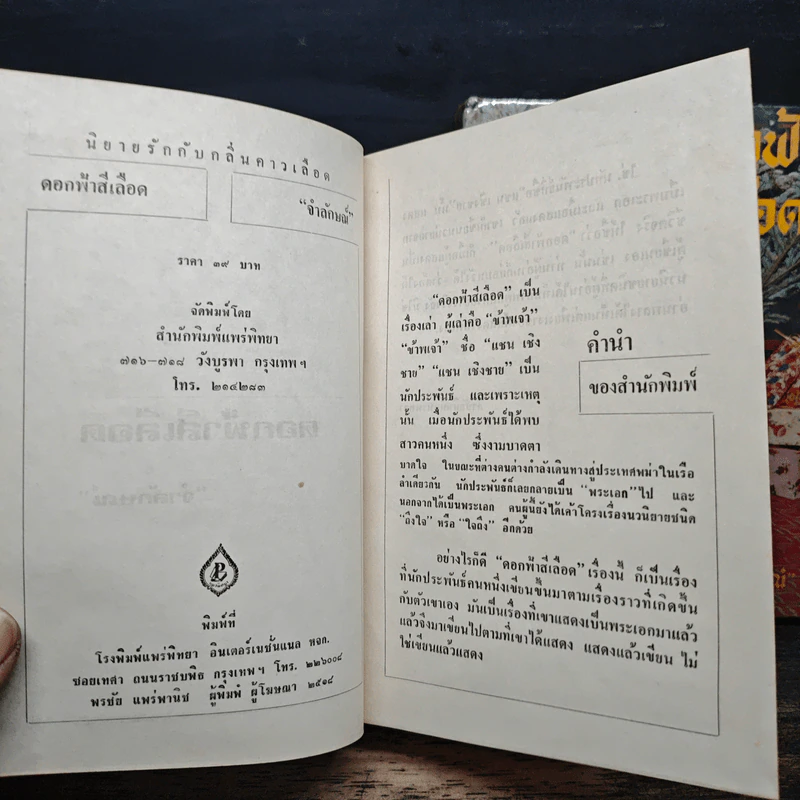 นิยายรักกับกลิ่นคาวเลือด
ดอกฟ้าสีเลือด
“จำลักษณ์”
ราคา ๓๙ บาท
จัดพิมพ์โดย
สำนักพิมพ์แพร่พิทยา
๗๑๖–๗๑๘ วังบูรพา กรุงเทพฯ
โทร. ๒๑๔๒๘๓
พิมพ์ที่
โรงพิมพ์แพร่พิทยา อินเตอร์เนชั่นแนล หจก.
ซอยเทศา ถนนราชบพิธ กรุงเทพฯ โทร. ๒๒๖๐๐๘
พรชัย แพร่พานิช ผู้พิมพ์ ผู้โฆษณา ๒๕๑๘
คำนำ
ของสำนักพิมพ์
“ดอกฟ้าสีเลือด” เป็น
เรื่องเล่า ผู้เล่าคือ “ข้าพเจ้า”
“ข้าพเจ้า” ชื่อ “แชน เชิง
ชาย” “แชน เชิงชาย” เป็น
นักประพันธ์ และเพราะเหตุ
นั้น เมื่อนักประพันธ์ได้พบ
สาวคนหนึ่ง ซึ่งงามบาดตา
บาดใจ ในขณะที่ต่างคนต่างกำลังเดินทางสู่ประเทศพม่าในเรือ
ลำเดียวกัน นักประพันธ์ก็เลยกลายเป็น “พระเอก” ไป และ
นอกจากได้เป็นพระเอก คนผู้นี้ยังได้เค้าโครงเรื่องนวนิยายชนิด
“ถึงใจ” หรือ “ใจถึง” อีกด้วย
อย่างไรก็ดี “ดอกฟ้าสีเลือด” เรื่องนี้ ก็เป็นเรื่อง
ที่นักประพันธ์คนหนึ่งเขียนขึ้นมาตามเรื่องราวที่เกิดขึ้น
กับตัวเขาเอง มันเป็นเรื่องที่เขาแสดงเป็นพระเอกมาแล้ว
แล้วจึงมาเขียนไปตามที่เขาได้แสดง แสดงแล้วเขียน ไม่
ใช่เขียนแล้วแสดง